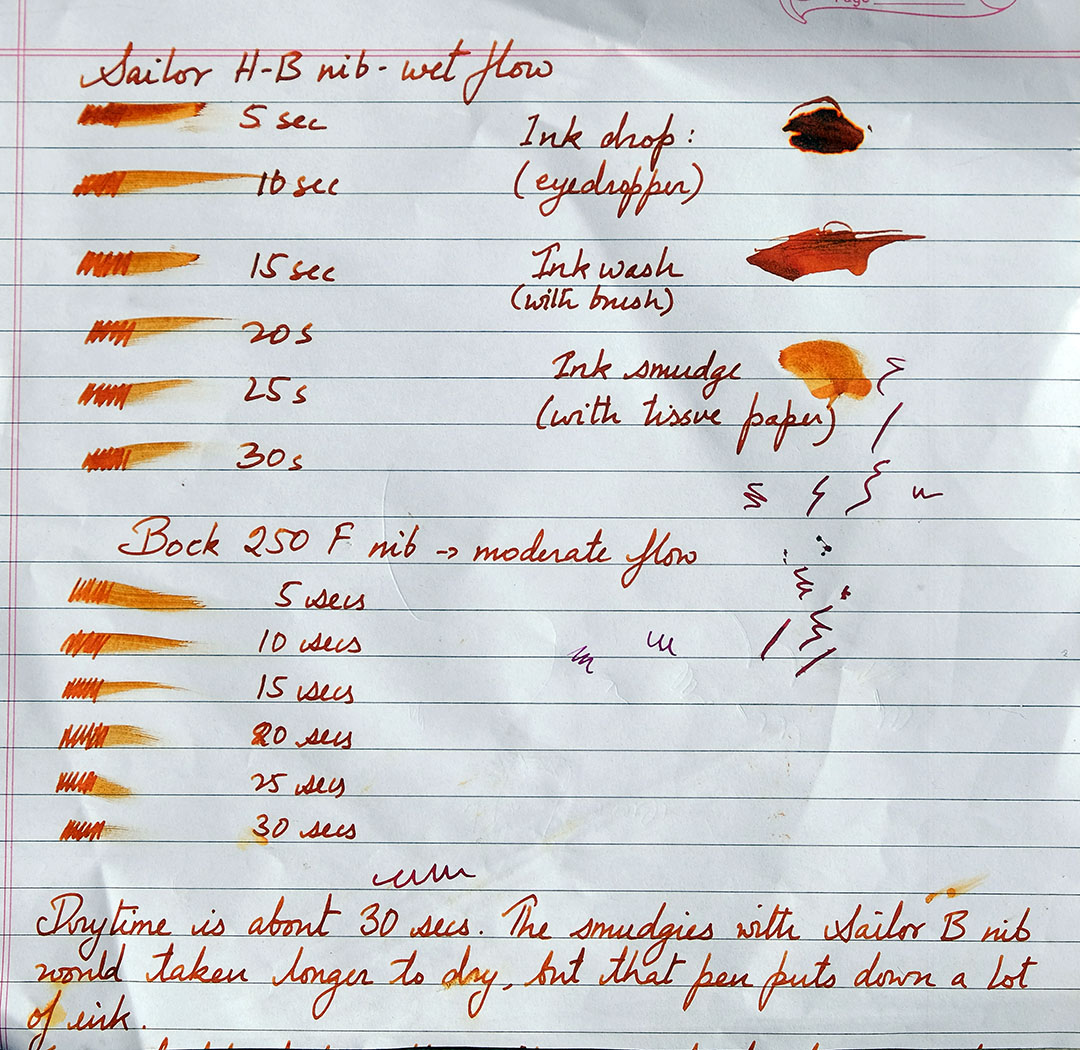 Page
Sailor H-B nib - wet flow
5 sec
10 sec
15 sec
20s
25s
30s
Ink drop:
(eyedropper)
Ink wash
(with brush)
Ink smudge
(with tissue paper)
Bock 250 F nib → moderate flow
5 secs
10 secs
15 secs
20 secs
25 secs
30 secs
Drytime is about 30 secs. The smudgies with Sailor B nib
would taken longer to dry, but that pen puts down a lot
of ink.